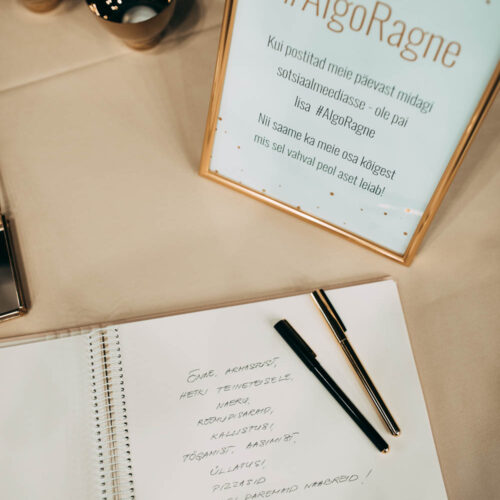 #AlgoRagne
Kui postitad meie päevast midagi
sotsiaalmeediasse - ole pai
lisa #AlgoRagne
Nii saame ka meie osa kõigest
mis sel vahval peol aset leiab!
ÕNNE, ARMASTUST,
HETKI TEINETEISELE,
NAERU,
RÕÕMUPISARAID,
KALLISTUSI,
TÕGAMIST, AASIMIST,
ÜLLATUSI,
PIZZASID
PAREMAID NAABREID!